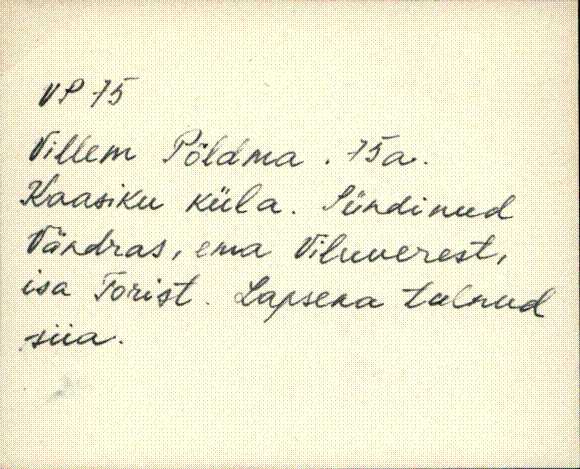 VP 75
Villem Põldma. 75a.
Kaasiku küla. Sündinud
Vändras, ema Viluverest,
isa Torist. Lapsena tulnud
siia.